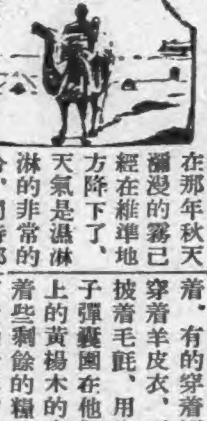 在那年秋天
瀰漫的霧已
經在維準地
方降下了、
天氣是濕淋
淋的非常的
着、有的穿着
穿着羊皮衣、
披着毛氈、用
子彈囊圍在他
上的黃楊木的
着些剩餘的糧